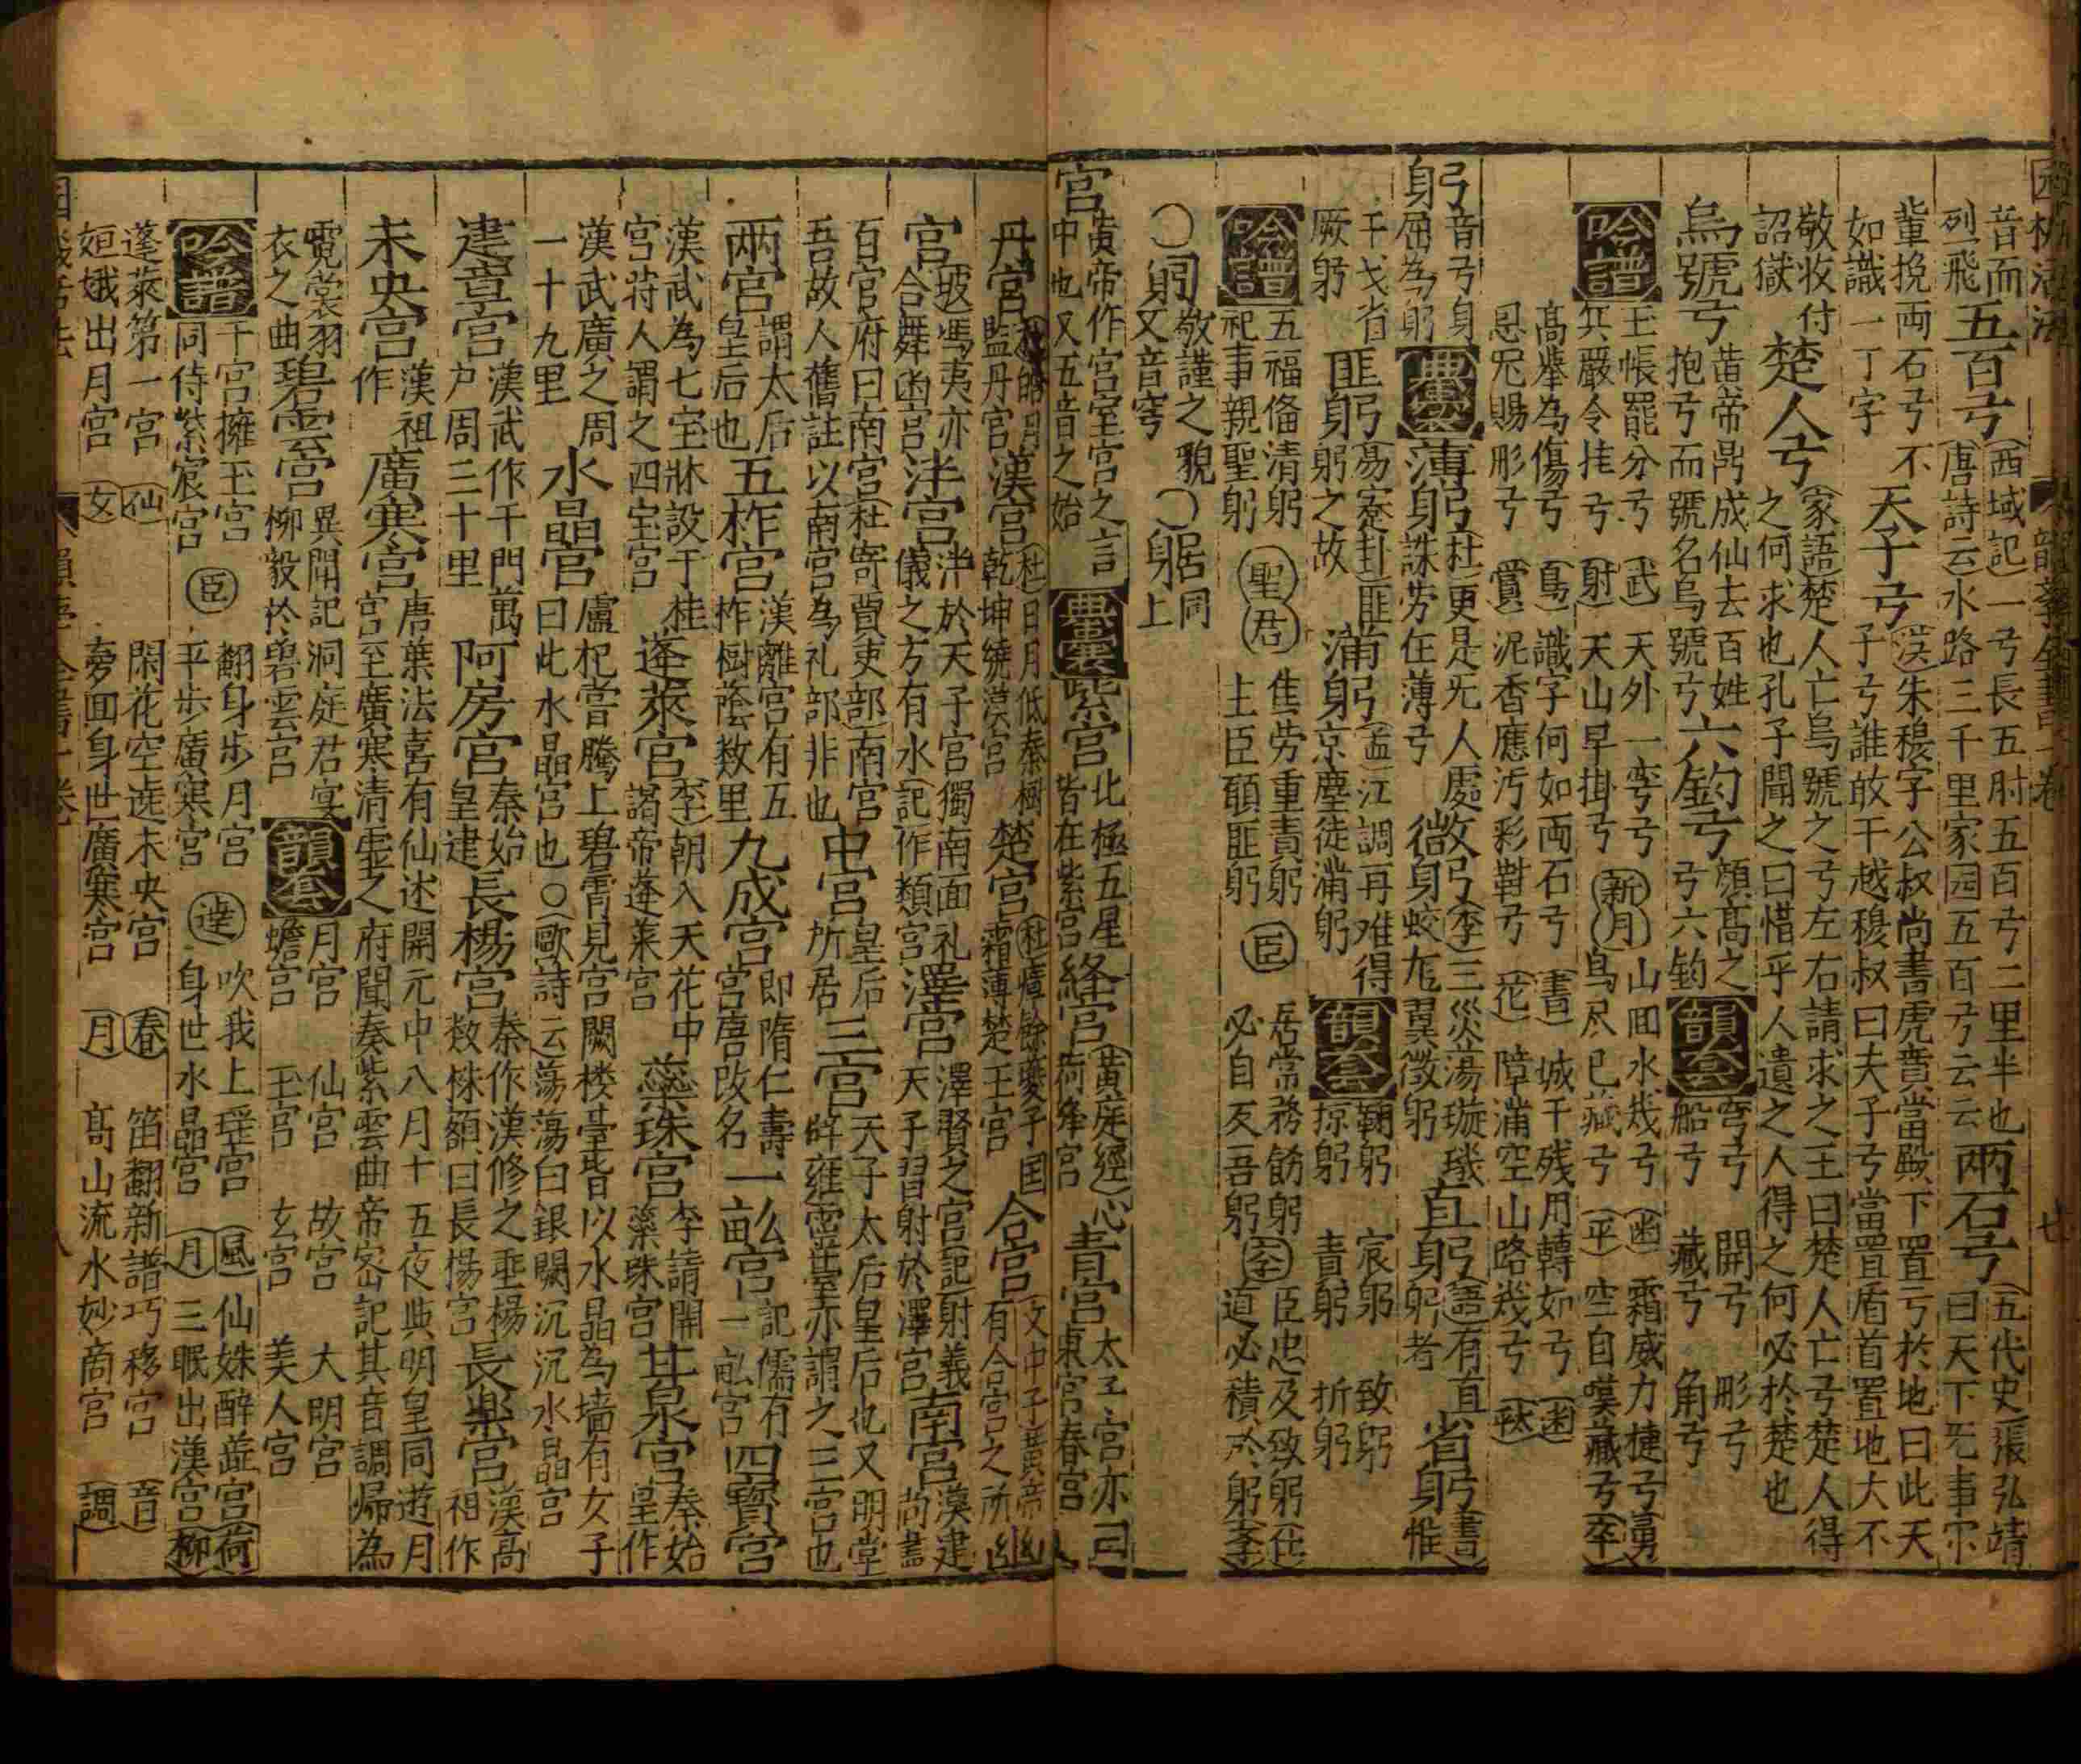 音而五百弓(西域記)一弓長五肘五百弓二里半也兩石弓(五代史)張弘靖
列飛(唐詩云)水路三千里家园五百弓云云曰天下旡事宗
軰挽両石弓不天子弓(漢)朱穆字公叔尚書虎賁當殿下置弓於地曰此天
如識一丁字子弓誰敢干越穆叔曰夫子弓當置盾首置地大不
敬收付楚人弓(家語)楚人亡烏號之弓左右請求之王曰楚人亡弓楚人得
詔獄之何求也孔子聞之曰惜乎人遺之人得之何必於楚也
烏號弓黃帝鼎成仙去百姓六鈞弓顔髙之韻套弯弓開弓彤弓
抱弓而號名烏號弓弓六鈞船弓藏弓角弓
吟譜玉帳罷分弓(武)天外一弯弓(新月)山回水幾弓(凾)霜威力捷弓(勇)
兵嚴令挂弓(射)天山早掛弓鳥尽已藏弓(平)空自嘆藏弓(卒)
髙舉為傷弓(鳥)識字何如両石弓(書)城干残用轉如弓(困)
恩冤賜形弓(賞)泥香應汚彩鞘弓(花)障滿空山路幾弓(愁)
躬音弓身典囊薄躬(杜)更是旡人處微躬(李)三災蕩璇璣直躬(語)有直省躬(書)
屈為躬誅茅任薄弓蛟虎翼微躬躬者惟
干戈省匪躬(易)蹇卦匪滿躬(孟)江調再难得韻套鞠躬哀躬致躬
厥躬躬之故京塵徒滿躬掠躬責躬折躬
吟譜五福俻清躬(聖君)隹劳重責躬(臣)居常務飭躬(孝)臣忠及致躬(仕)
祀事親聖躬主臣頥匪躬必自反吾躬道必積於躬(李)
〇躬敬謹之貌〇躳同
又音穹上
宮黃帝作宮室宮之言典囊紫宮北極五星絳宮(黃庭經)心青宮太子宮亦曰
中也又五音之始皆在紫宮荷絳宮東宮春宮
丹宮杜皓月漢宮(杜)日月低秦樹楚宮(杜)瘴餘夔子国合宮(文中子)黃帝幽
監丹宮乾坤繞漢宮霜薄楚王宮有合宮之所
宮馮夷亦泮宮泮於天子宮獨南面礼澤宮澤賢之宮(記)射義南宮漢建
合舞凾宮儀之方有水(記)作類宮天子習射於澤宮尚書
百官府曰南宮(杜寄賈吏部)南宮中宮皇后三宮天子太后皇后也又明堂
吾故人舊註以南宮為礼部非也所居辟雍靈臺亦謂之三宮也
兩宮謂太后五柞宮漢離宮有五九成宮即隋仁壽一畒宮記儒有四寳宮
皇后也柞樹蔭数里宮唐改名一畝宮
漢武為七宝牀設于桂蓬萊宮(李)朝入天花中蘂珠宮李請開甘泉宮秦始
宮荷人謂之四宝宮謁帝蓬萊宮蘂珠宮皇作
漢武廣之周水晶宮盧杞嘗騰上碧霄見宮闕楼臺皆以水晶為墻有女子
一十九里曰此水晶宮也〇(歐詩云)蕩蕩白銀闕沉沉水晶宮
建章宮漢武作千門萬阿房宮秦始長楊宮秦作漢修之垂楊長樂宮漢高
户周三十里皇建数株額曰長楊宮祖作
未央宮漢祖廣寒宮唐葉法善有仙述開元中八月十五夜與明皇同遊月
作宮至廣寒清虛之府聞奏紫雲曲帝密記其音調歸為
霓裳羽碧雲宮異聞記洞庭君宴韻套月宮仙宮故宮大明宮
衣之曲柳毅於碧雲宮蟾宮玉宮玄宮美人宮
吟譜千官擁玉宮(臣)翻身步月宮(逹)吹我上瑶宮(風)仙姝醉蘂宮(荷)
同侍紫宸宮平歩廣寒宮身世水晶宮(月)三眠出漢宮(柳)
蓬萊第一宮(仙)閑花空遶未央宮(春)笛翻新譜巧移宮(音)
姮娥出月宮(女)夢回身世廣寒宮(月)髙山流水妙商宮(調)